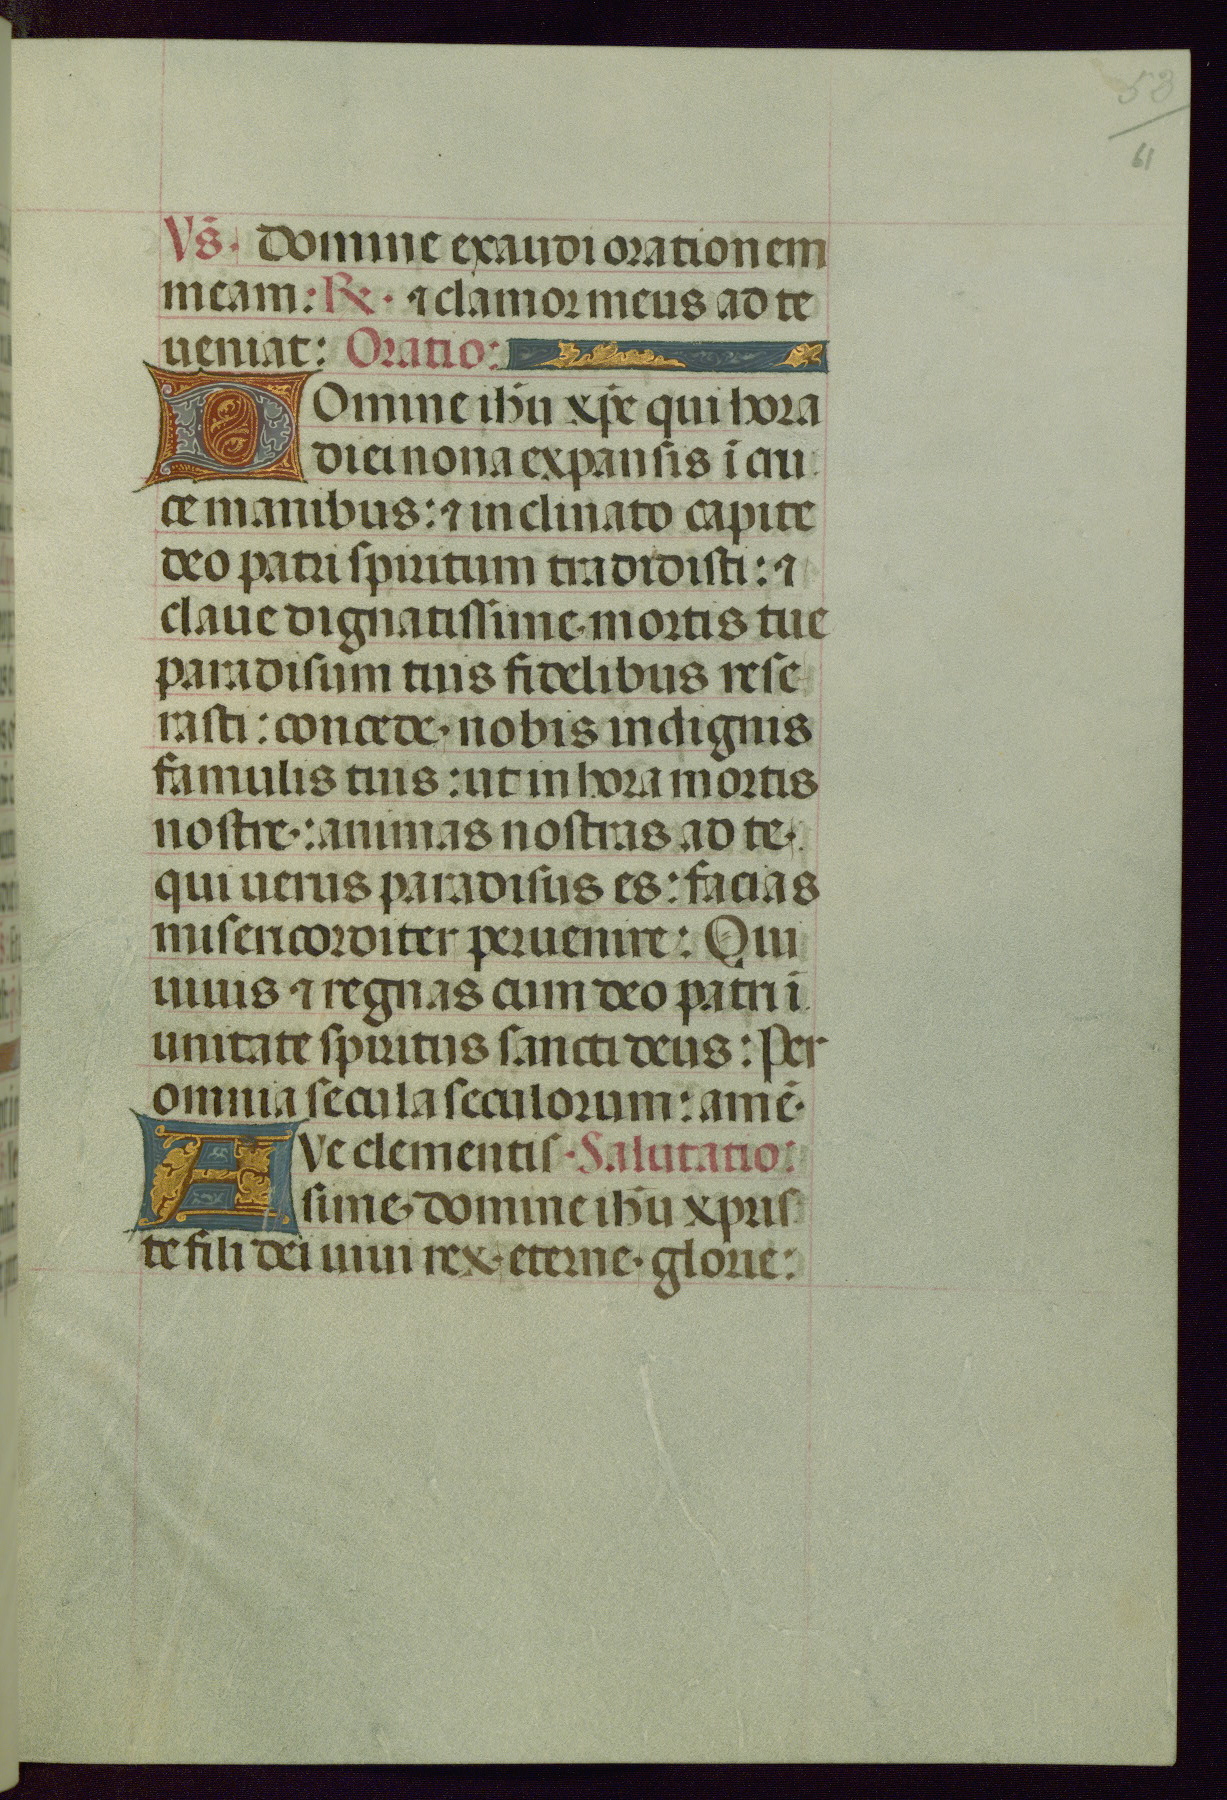 53
61
Vs̄· Domine exaudi orationem
meam: ℟· ⁊ clamor meus ad te
ueniat: Oratio:
DOmine ihū xp̄e qui hora
diei nona expansis ī cru
ce manibus: ⁊ inclinato capite
deo patri spiritum tradidisti: ⁊
claue dignatissime· mortis tue
paradisum tuis fidelibus rese
rasti: concede· nobis indignis
famulis tuis: ut in hora mortis
nostre·: animas nostras ad te·
qui uerus paradisus es: facias
misericorditer peruenire: Qui
uiuis ⁊ regnas cum deo patri ī
unitate spiritus sancti deus: Per
omnia secula seculorum: amē·
AVe clementis· Salutatio:
sime· domine ihū xpris
te fili dei uiui rex· eterne· glorie: